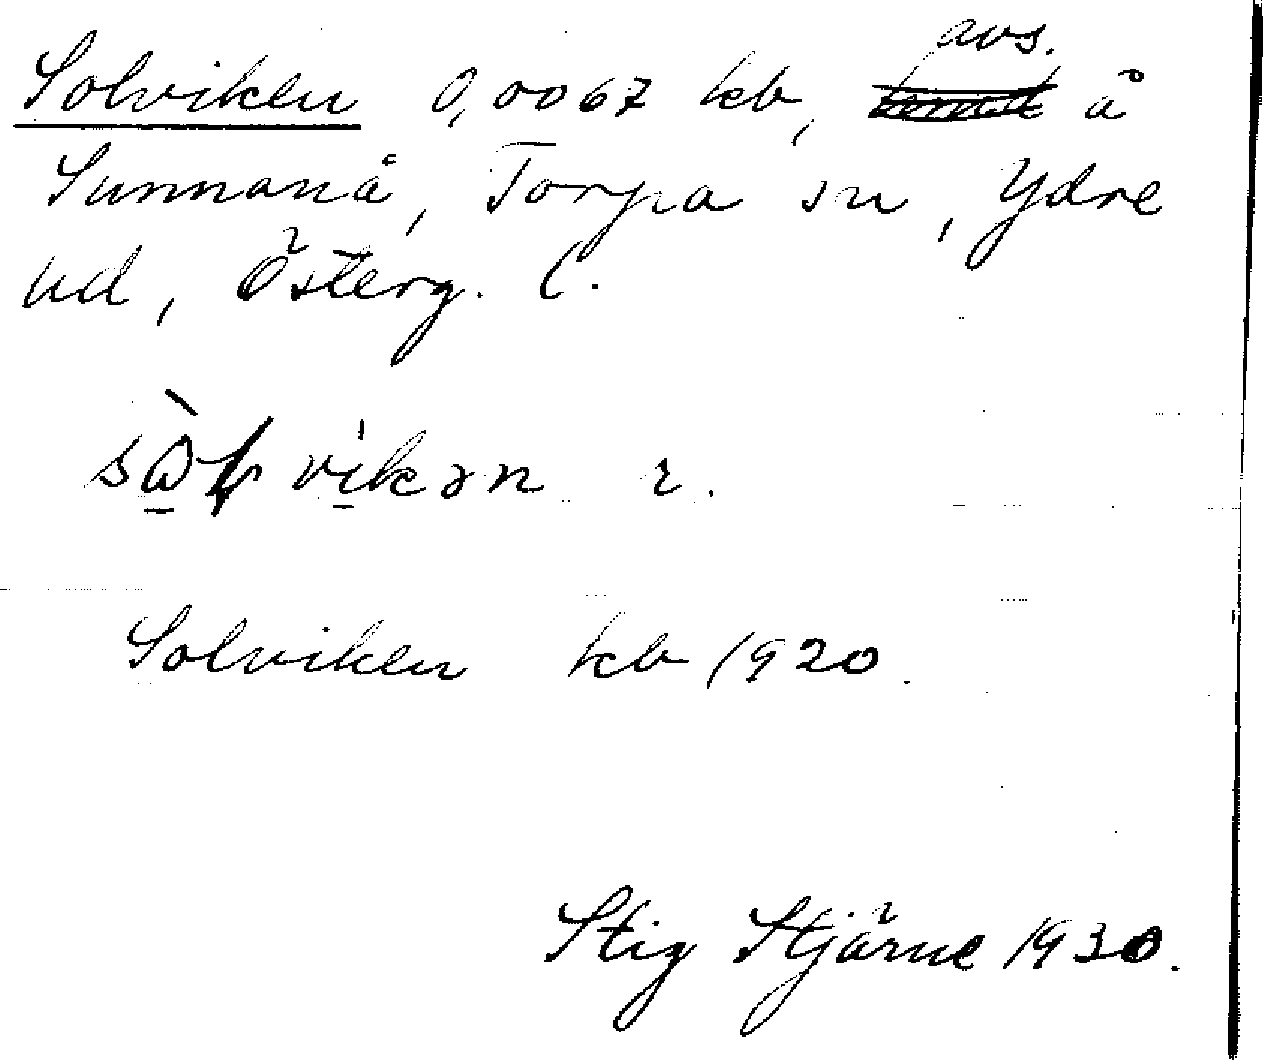 Solviken 0,0067 kb, avs. å
Sunnanå, Torpa sn, Ydre
hd, Österg. l.
vikən r.
Solviken kb 1920.
Stig Stjärne 1930.